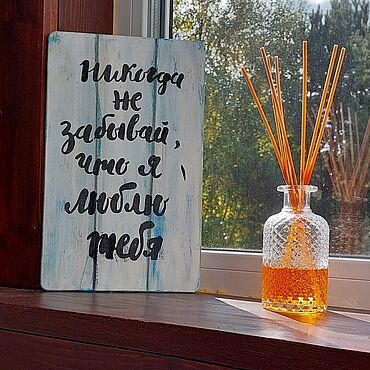 никогда
не
забывай,
что я
люблю
тебя